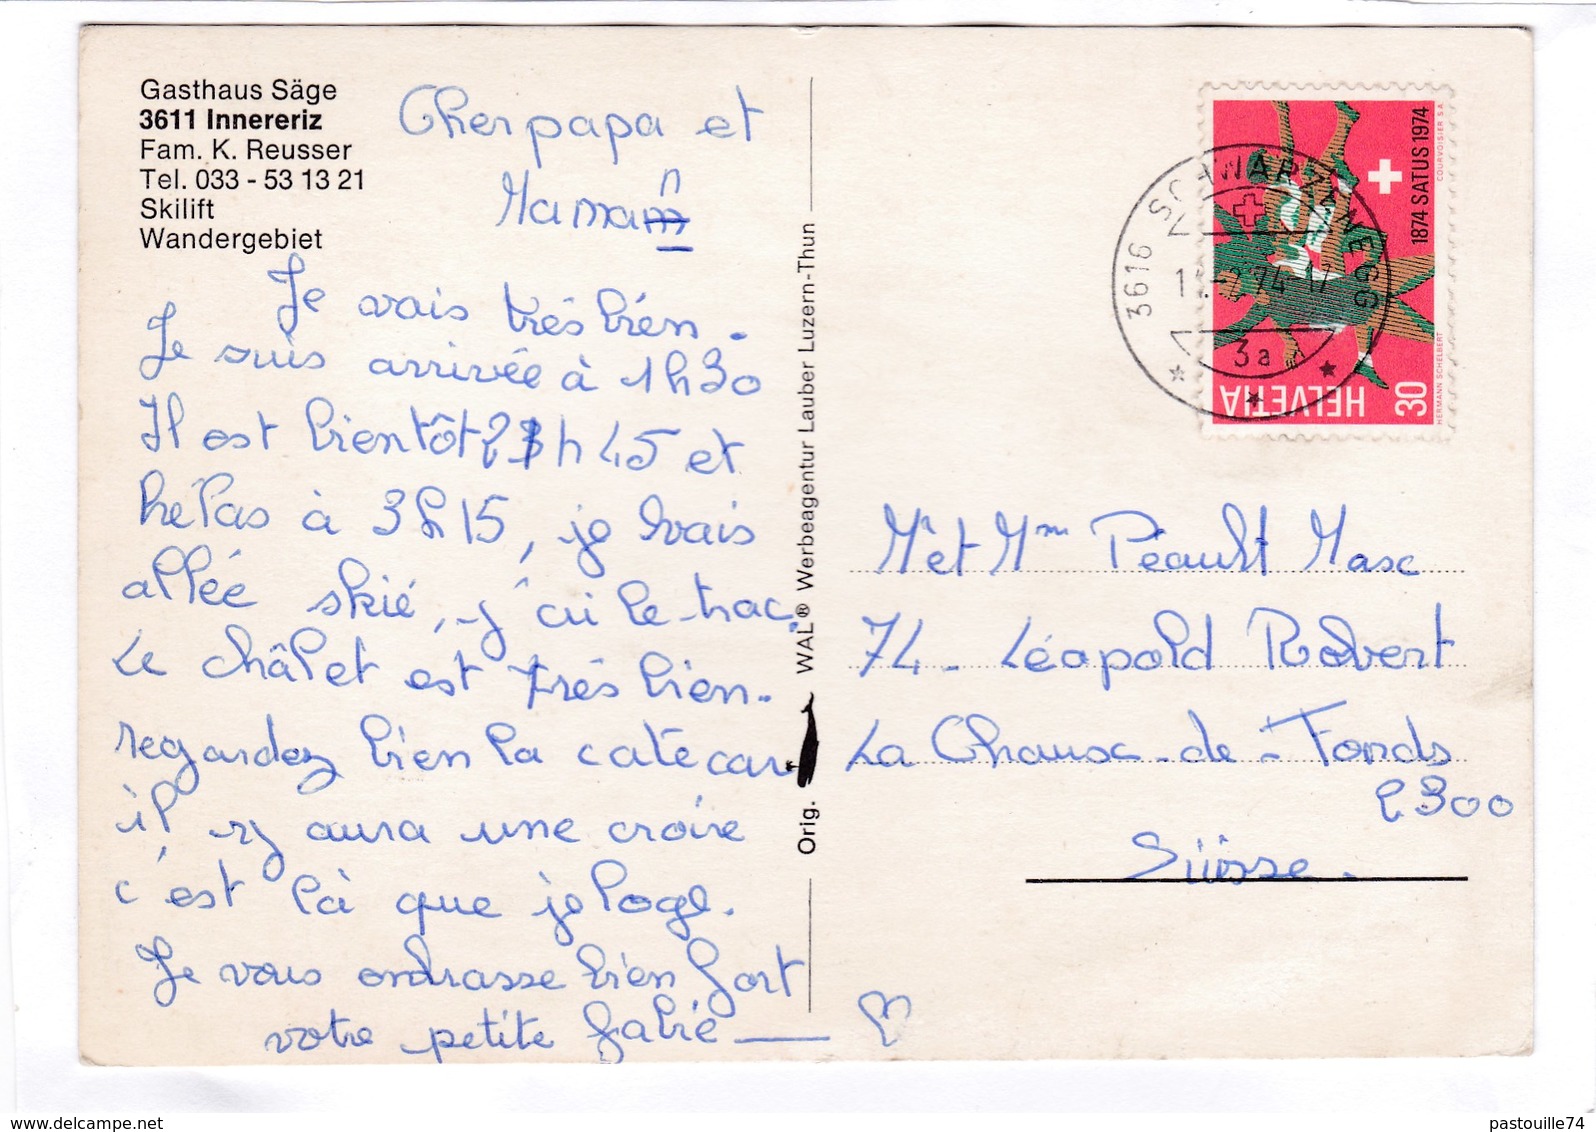 Gasthaus Säge
3611 Innereriz
Fam. K. Reusser
Tel. 033 - 53 13 21
Skilift
Wandergebiet
Cher papa et
Maman
Je vais très bien.
Je suis arrivée à 1h30
Il est bientôt 2h 45 et
hélas à 3h15, je vais
allée skié, j'ai le trac.
Le châlet est très bien.
regardez bien la cate car
il y aura une croire
c'est là que je loge.
Je vous ombrasse bien fort
votre petite Fabie
WAL® Werbeagentur Lauber Luzern-Thun
Orig.
3616 SCHWARZENEGG
1 -2.74-17
3a
1874 SATUS 1974
COURVOISIER S.A.
HERMANN SCHELBERT
HELVETIA 30
Mr et Mme Péault Marc
74 - Léopold Robert
La Chaux-de-Fonds
2300
Süisse.
www.delcampe.net
pastouille74